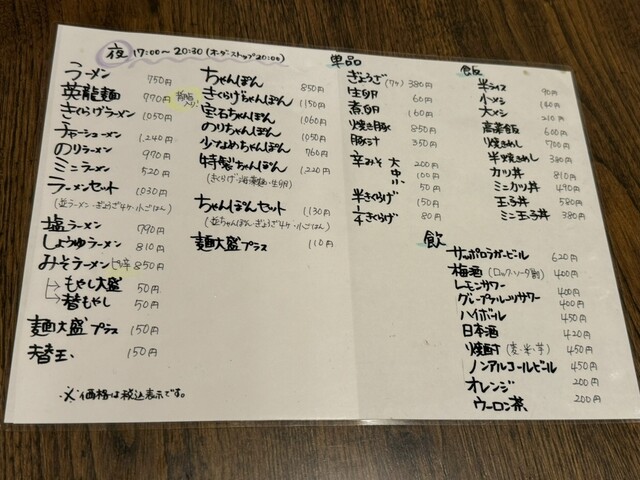 夜 17:00～20:30(オーダーストップ20:00)
ラーメン 750円
英龍麺 970円
きくらげラーメン 1050円
チャーシューメン 1,240円
のりラーメン 970円
ミニラーメン 520円
ラーメンセット 1030円
(並ラーメン・ぎょうざ4ケ・小ごはん)
塩ラーメン 790円
しょうゆラーメン 810円
みそラーメン ピリ辛 850円
もやし大盛 50円
替もやし 50円
麺大盛プラス 150円
替玉 150円
※価格は税込表示です。
ちゃんぽん 850円
きくらげちゃんぽん 1150円
宝石ちゃんぽん 1060円
のりちゃんぽん 1050円
少なめちゃんぽん 760円
特製ちゃんぽん 1,220円
(きくらげ・海藻麺・生卵)
ちゃんぽんセット 1130円
(並ちゃんぽん・ぎょうざ4ケ・小ごはん)
麺大盛プラス 110円
単品
ぎょうざ(7ケ) 380円
生卵 60円
煮卵 160円
焼き豚 850円
豚汁 350円
辛みそ 大 200円
中 100円
小 50円
半きくらげ 150円
1/4きくらげ 80円
飯
半ライス 90円
小メシ 160円
大メシ 210円
高菜飯 600円
焼きめし 700円
半焼きめし 380円
カツ丼 810円
ミニカツ丼 490円
玉子丼 580円
ミニ玉子丼 380円
飲
サッポロラガービール 620円
梅酒(ロック・ソーダ割) 400円
レモンサワー 400円
グレープフルーツサワー 400円
ハイボール 450円
日本酒 420円
焼酎(麦・米・芋) 450円
ノンアルコールビール 450円
オレンジ 200円
ウーロン茶 200円